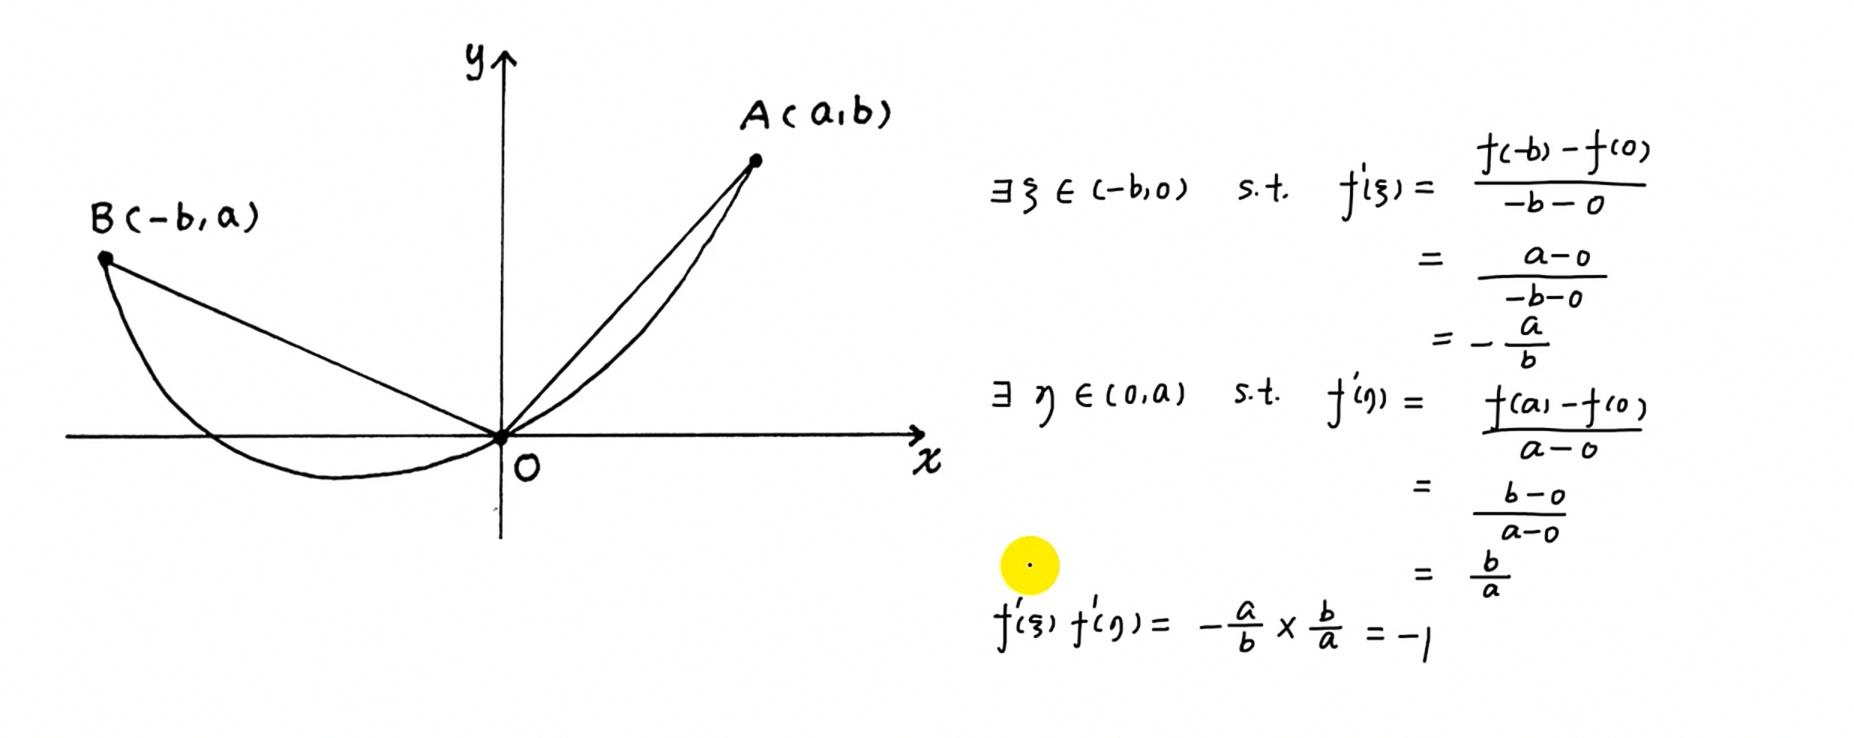 y
A(a,b)
B(-b,a)
O
x
∃ξ∈(-b,0) s.t. f'(ξ)= \frac{f(-b)-f(0)}{-b-0}
= \frac{a-0}{-b-0}
= -\frac{a}{b}
∃η∈(0,a) s.t. f'(η)= \frac{f(a)-f(0)}{a-0}
= \frac{b-0}{a-0}
= \frac{b}{a}
f'(ξ)f'(η)= -\frac{a}{b}×\frac{b}{a}=-1